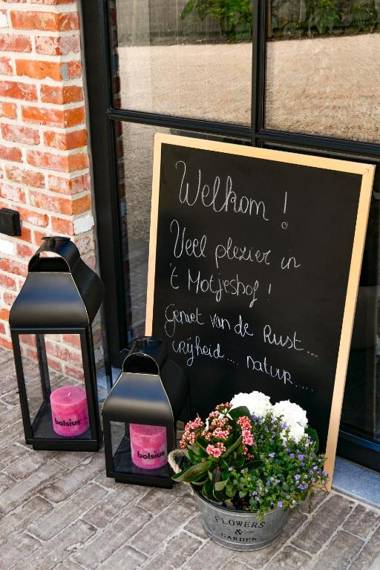 Welkom !
Veel plezier in
't Motjeshof !
Geniet van de Rust...
vrijheid.... natuur.....
bolsius
bolsius
FLOWERS
&
GARDEN